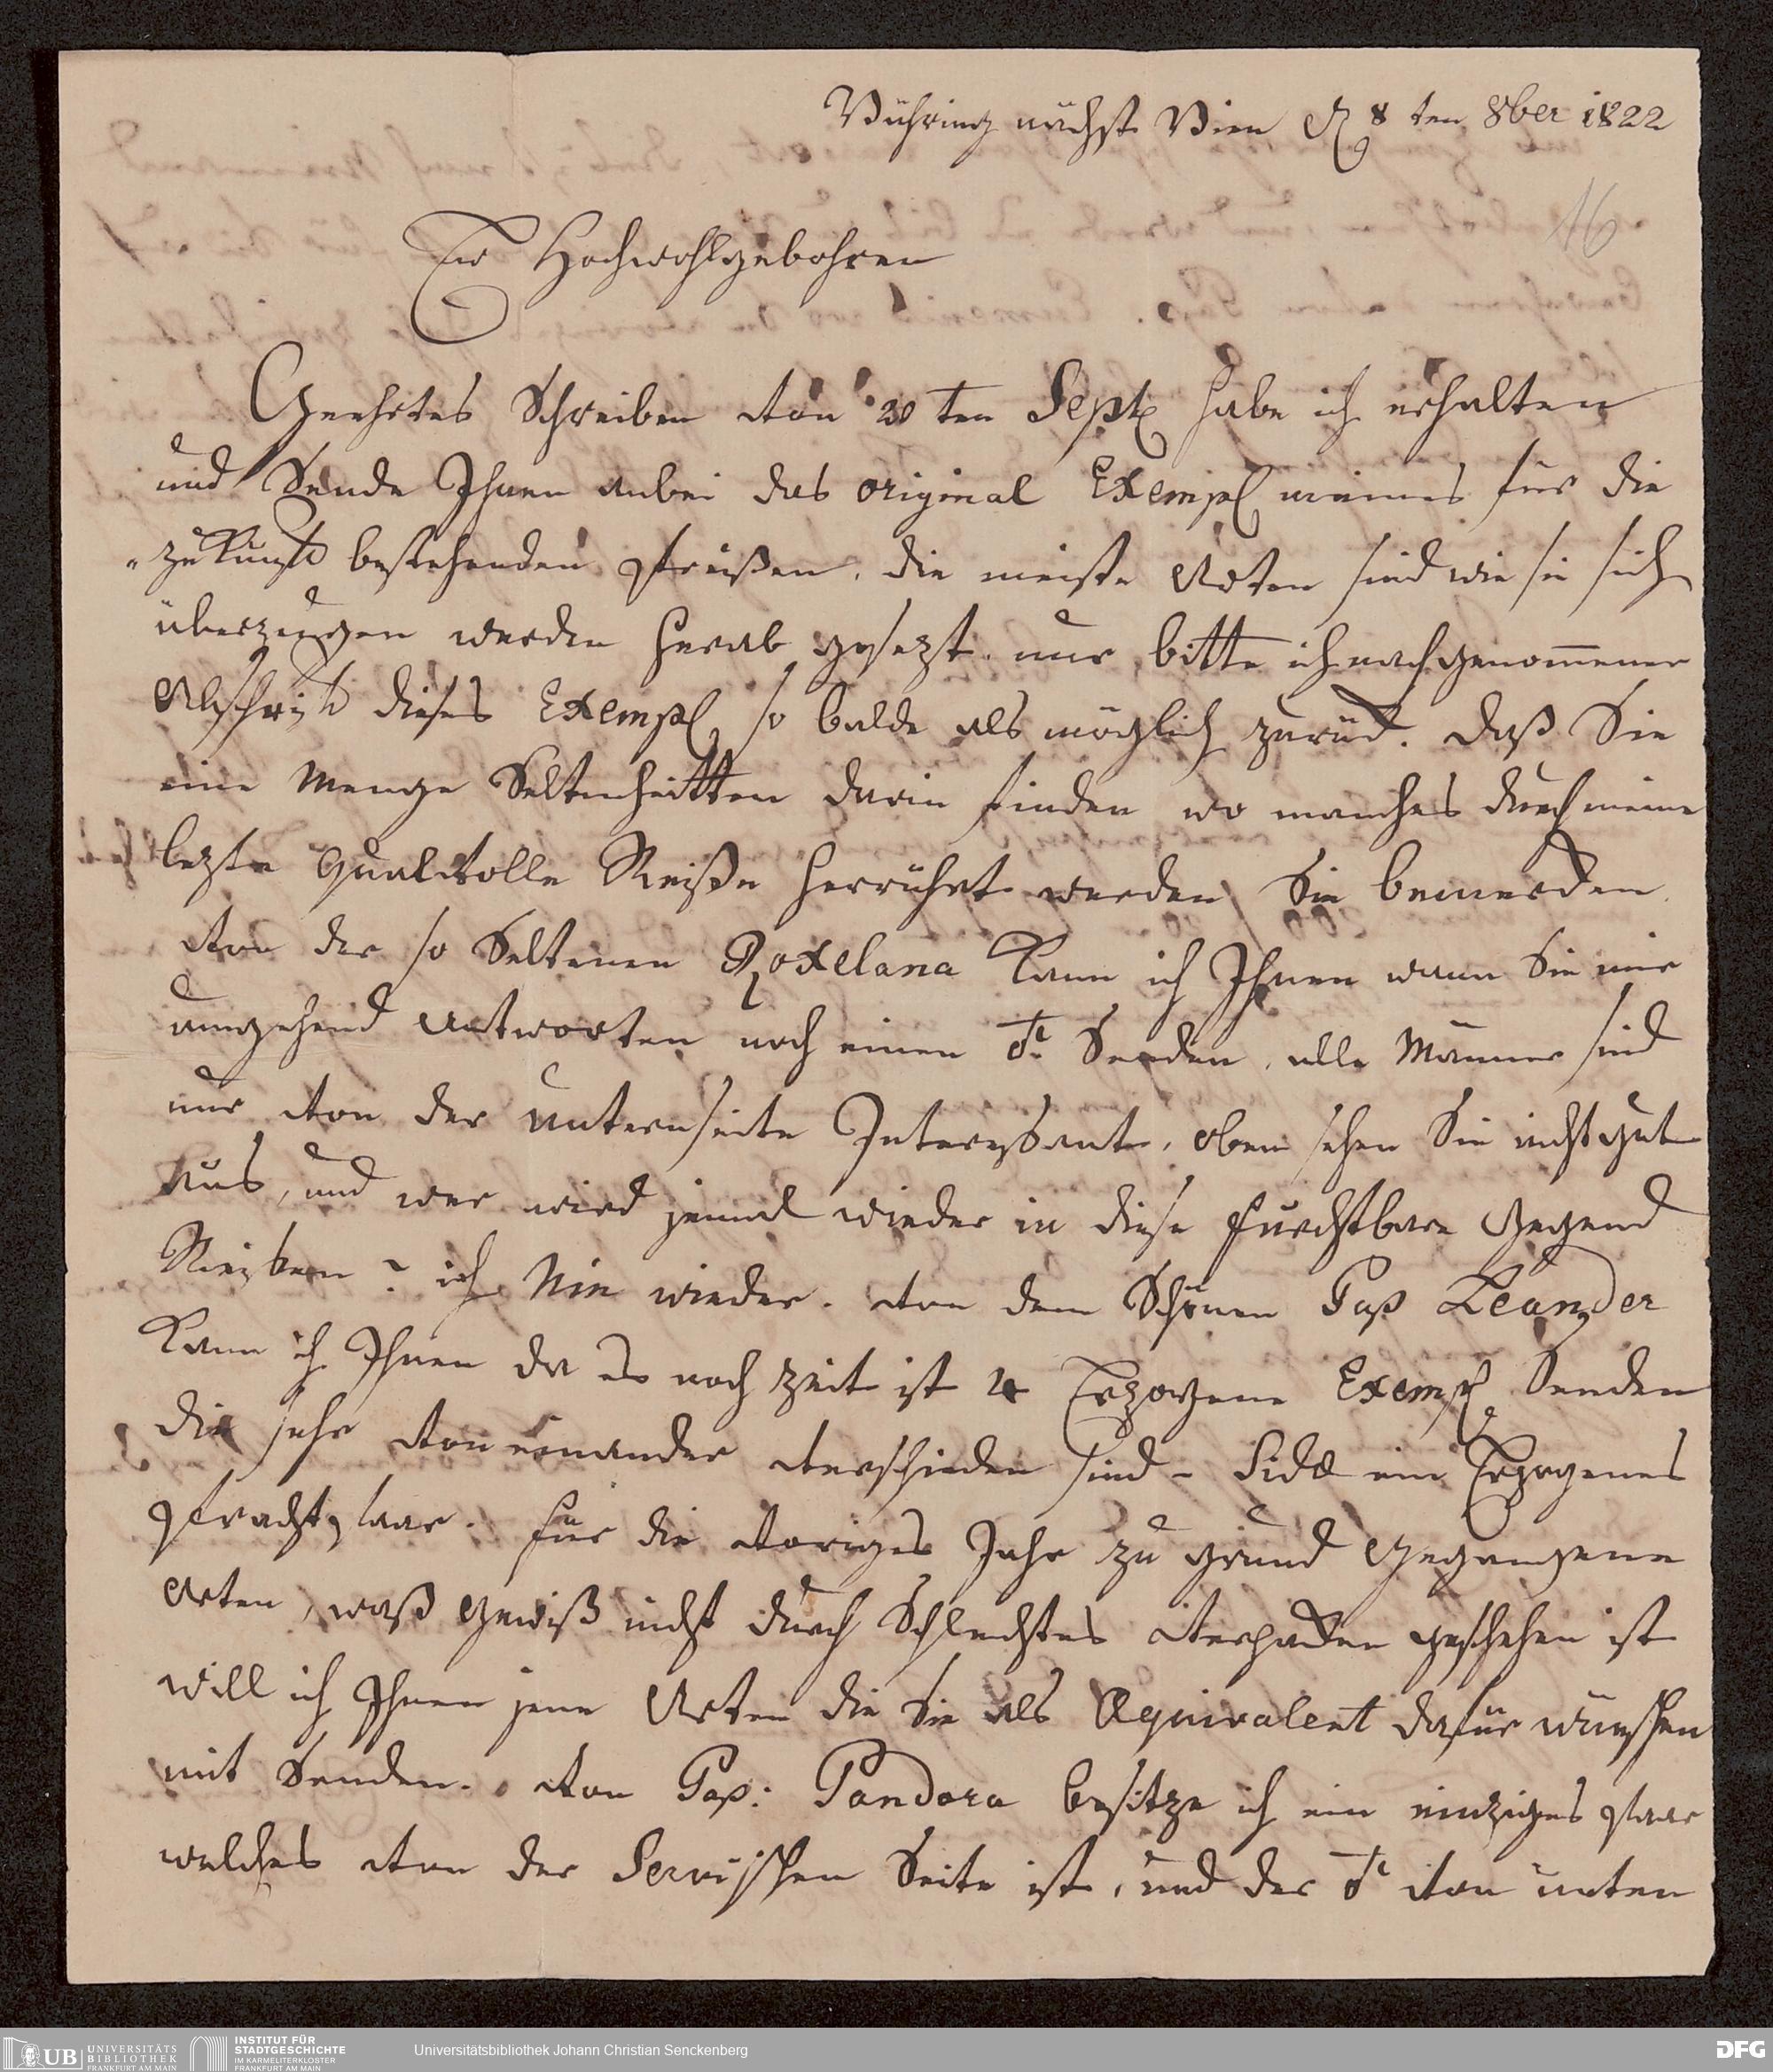 Währing nächst Wien d 8 ten 8ber 1822
16
Ew Hochwohlgebohren
Geehrtes Schreiben von 20 ten Sept habe ich erhalten
und Sende Ihnen anbei das original Exempl meines für die
zukunft bestehenden Preißen, die meiste Arten sind wie sie sich
überzeugen werden herab gesezt. nur bitte ich nach genommener
Abschrift dieses Exempl so balde als möglich zurück. Daß Sie
eine Menge Seltenheitten darin finden wo manches durch meine
lezte qualvolle Reiße herrührt werden Sie bemerken
von der so Seltenen Roxelana kann ich Ihnen wann Sie mir
umgehend antworten noch einen ♂ Senden, alle Männer sind
nur von der unternseite Interessant, oben sehen Sie nicht gut
aus, und wer wird jemal wieder in diese furchtbare Gegend
Reisen? ich Nie wieder. von dem Schönen Pap Leander
kann ich Ihnen da es noch zeit ist 4 Erzogene Exempl Senden
die sehr von einander verschieden sind - Sida ein Erzogenes
Prachtpaar. für die voriges Jahr zu grund Gegangene
Arten, waß gewiß nicht durch Schlechtes verpacken geschehen ist
will ich Ihnen jene Arten die Sie als Æquivalent dafür wünschen
mit Senden. von Pap: Pandora besitze ich ein einziges paar
welches von der Servischen Seite ist, und der ♂ von unten
UB UNIVERSITÄTS
BIBLIOTHEK
FRANKFURT AM MAIN
INSTITUT FÜR
STADTGESCHICHTE
IM KARMELITERKLOSTER
FRANKFURT AM MAIN
Universitätsbibliothek Johann Christian Senckenberg
DFG